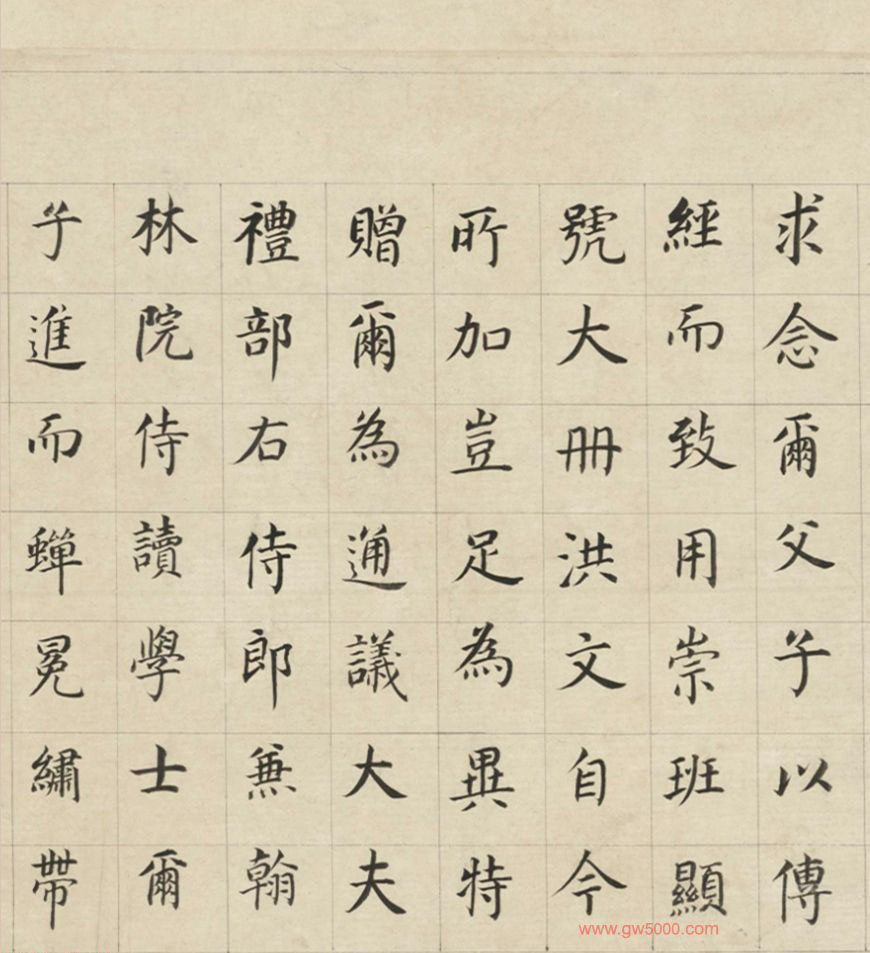 求念爾父子以傳
經而致用崇班顯
號大冊洪文自今
所加豈足為異特
贈爾為通議大夫
禮部右侍郎兼翰
林院侍讀學士爾
子進而蟬冕繡帶
www.gw5000.com